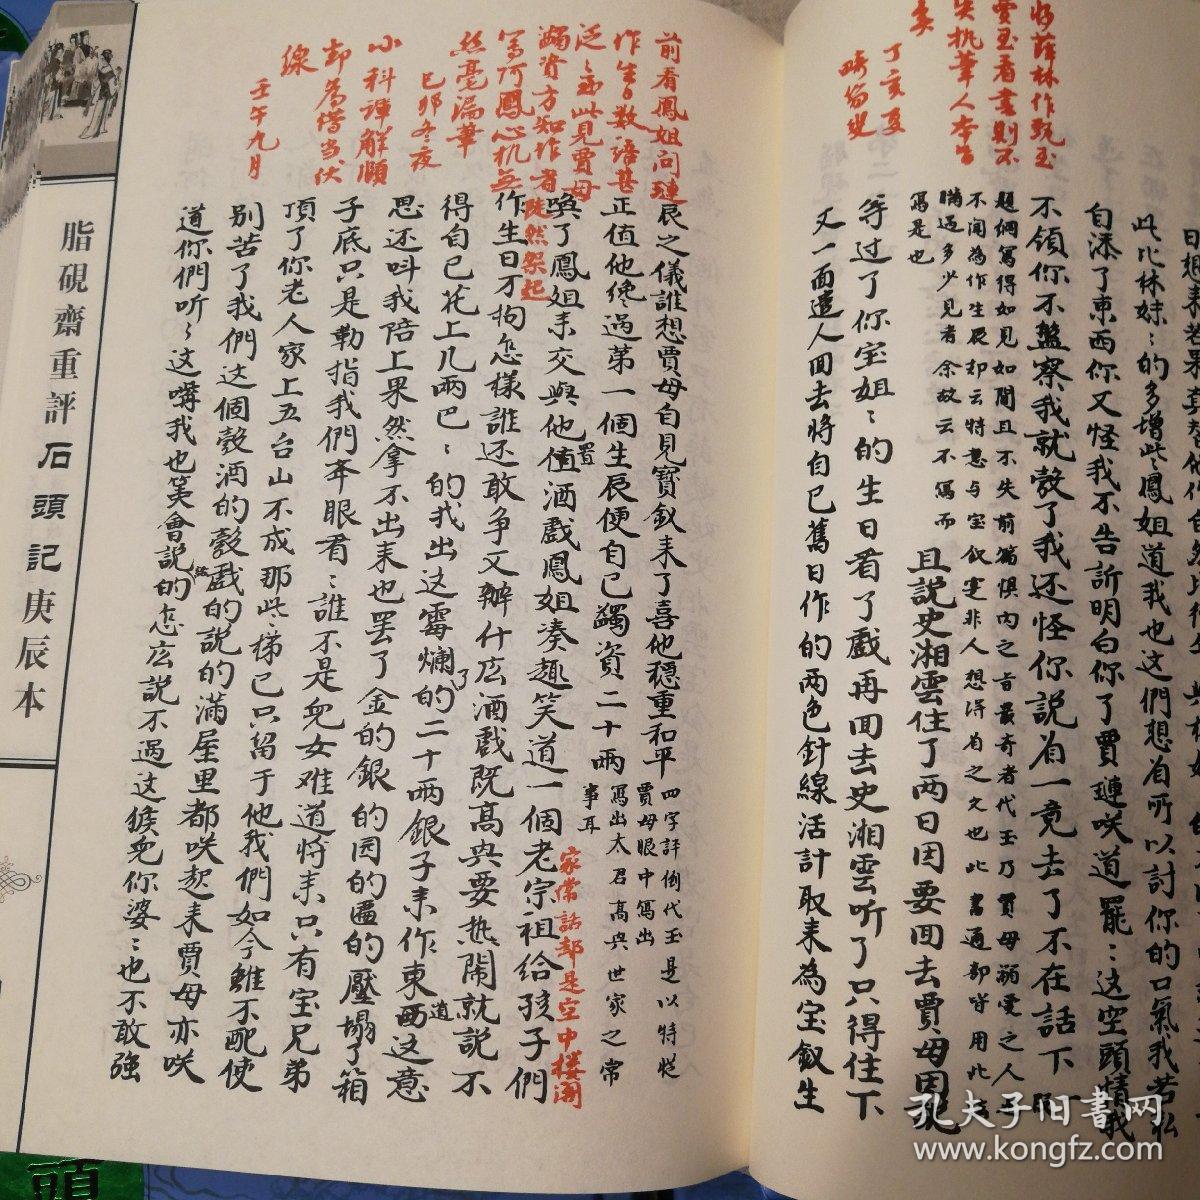 将薛林作甄玉
賈玉看書則不
失执筆人本旨
矣
丁亥夏
畸笏叟
此比林妹〻的多增些鳳姐道我也這們想着所以討你的口氣我若私
自添了東西你又怪我不告訴明白你了賈璉咲道罷〻這空頭情我
不領你不盤察我就彀了我还怪你説着一竟去了不在話下
題綱寫得如見如聞且不失前篇惧内之旨最奇者代玉乃賈母溺愛之人
不闻為作生辰却云特意与宝釵寔非人想得着之文也此書通部皆用此法
瞞過多少見者余故云不寫而
寫是也
且説史湘雲住了两日因要回去賈母因説
等过了你宝姐〻的生日看了戲再回去史湘雲听了只得住下
又一面遣人回去将自己舊日作的两色針線活計取来為宝釵生
前看鳳姐问璉
作生日数語甚
泛〻至此見賈母
蠲資方知作者
寫阿鳳心机無
絲毫漏筆
己卯冬夜
小科諢解頤
却為借当伏
線
壬午九月
辰之儀誰想賈母自見寳釵来了喜他穩重和平
四字評倒代玉是以特從
賈母眼中寫出
正值他绕过第一個生辰便自己蠲資二十兩
寫出太君高兴世家之常
事耳
喚了鳳姐来交與他值置酒戲鳳姐凑趣笑道一個老宗祖给孩子們
陡然架起
家常話却是空中樓阁
作生日不拘怎様誰还敢争又辦什庅酒戲既高兴要热闹就説不
得自己花上几两巴〻的我出這霉爛的二十两銀子来作東西道這意
了
思还叫我陪上果然拿不出来也罢了金的銀的园的匾的壓塌了箱
子底只是勒指我們奔眼看〻誰不是兒女难道将来只有宝兄弟
頂了你老人家上五台山不成那些梯己只留于他我們如今雖不配使
别苦了我們这個彀酒的彀戲的説的滿屋里都咲起来賈母亦咲
道你們听〻这嘴我也笑會説的怎庅説不过这猴兒你婆〻也不敢強
脂硯齋重評石頭記庚辰本
頭
孔夫子旧书网
www.kongfz.com